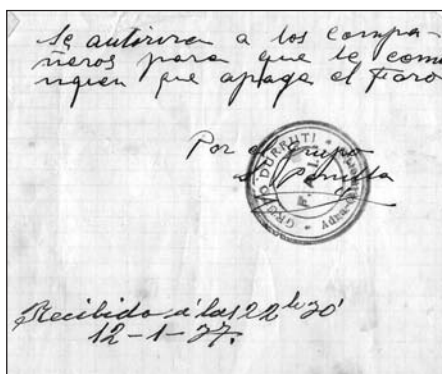 Se autorizan a los compa-
ñeros para que le comu
niquen que apaga el Faro
Por el Grupo
GRUPO DURRUTI
F. A. I.
Adra
Recibido á las 22 h 30'
12-1-37.